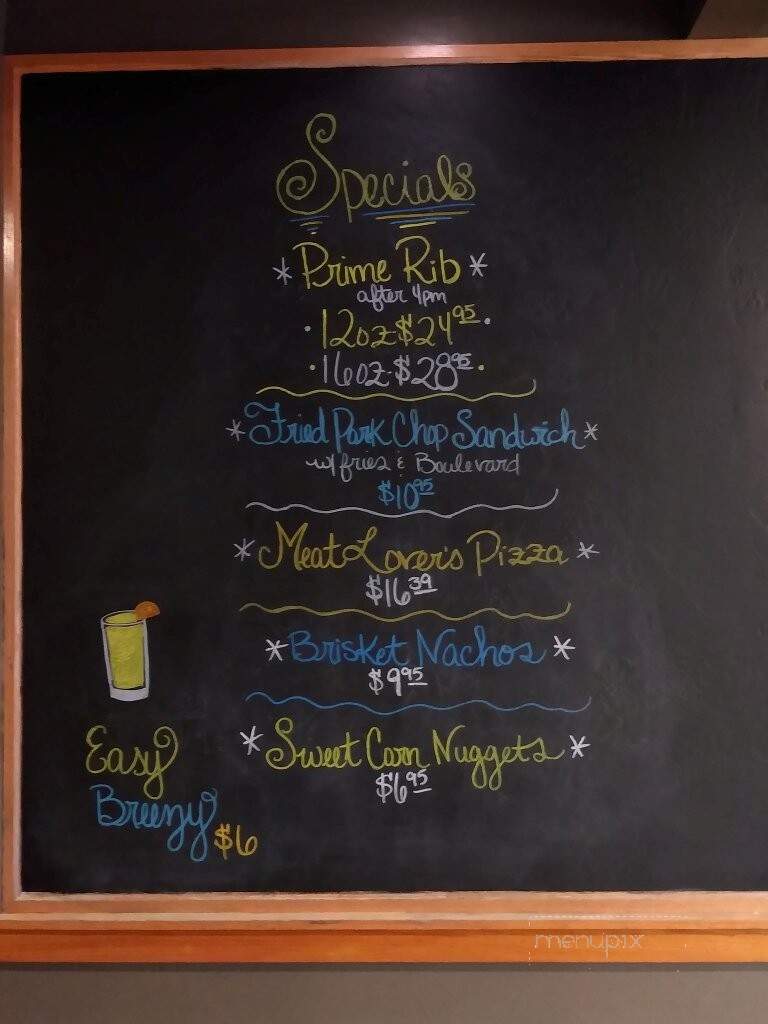 Specials
* Prime Rib *
after 4pm
· 12oz-$24.95 ·
· 16oz-$28.95 ·
* Fried Pork Chop Sandwich *
w/ fries & Boulevard
$10.95
* Meat Lover's Pizza *
$16.39
* Brisket Nachos *
$9.95
* Sweet Corn Nuggets *
$6.95
Easy
Breezy
$6
menupix